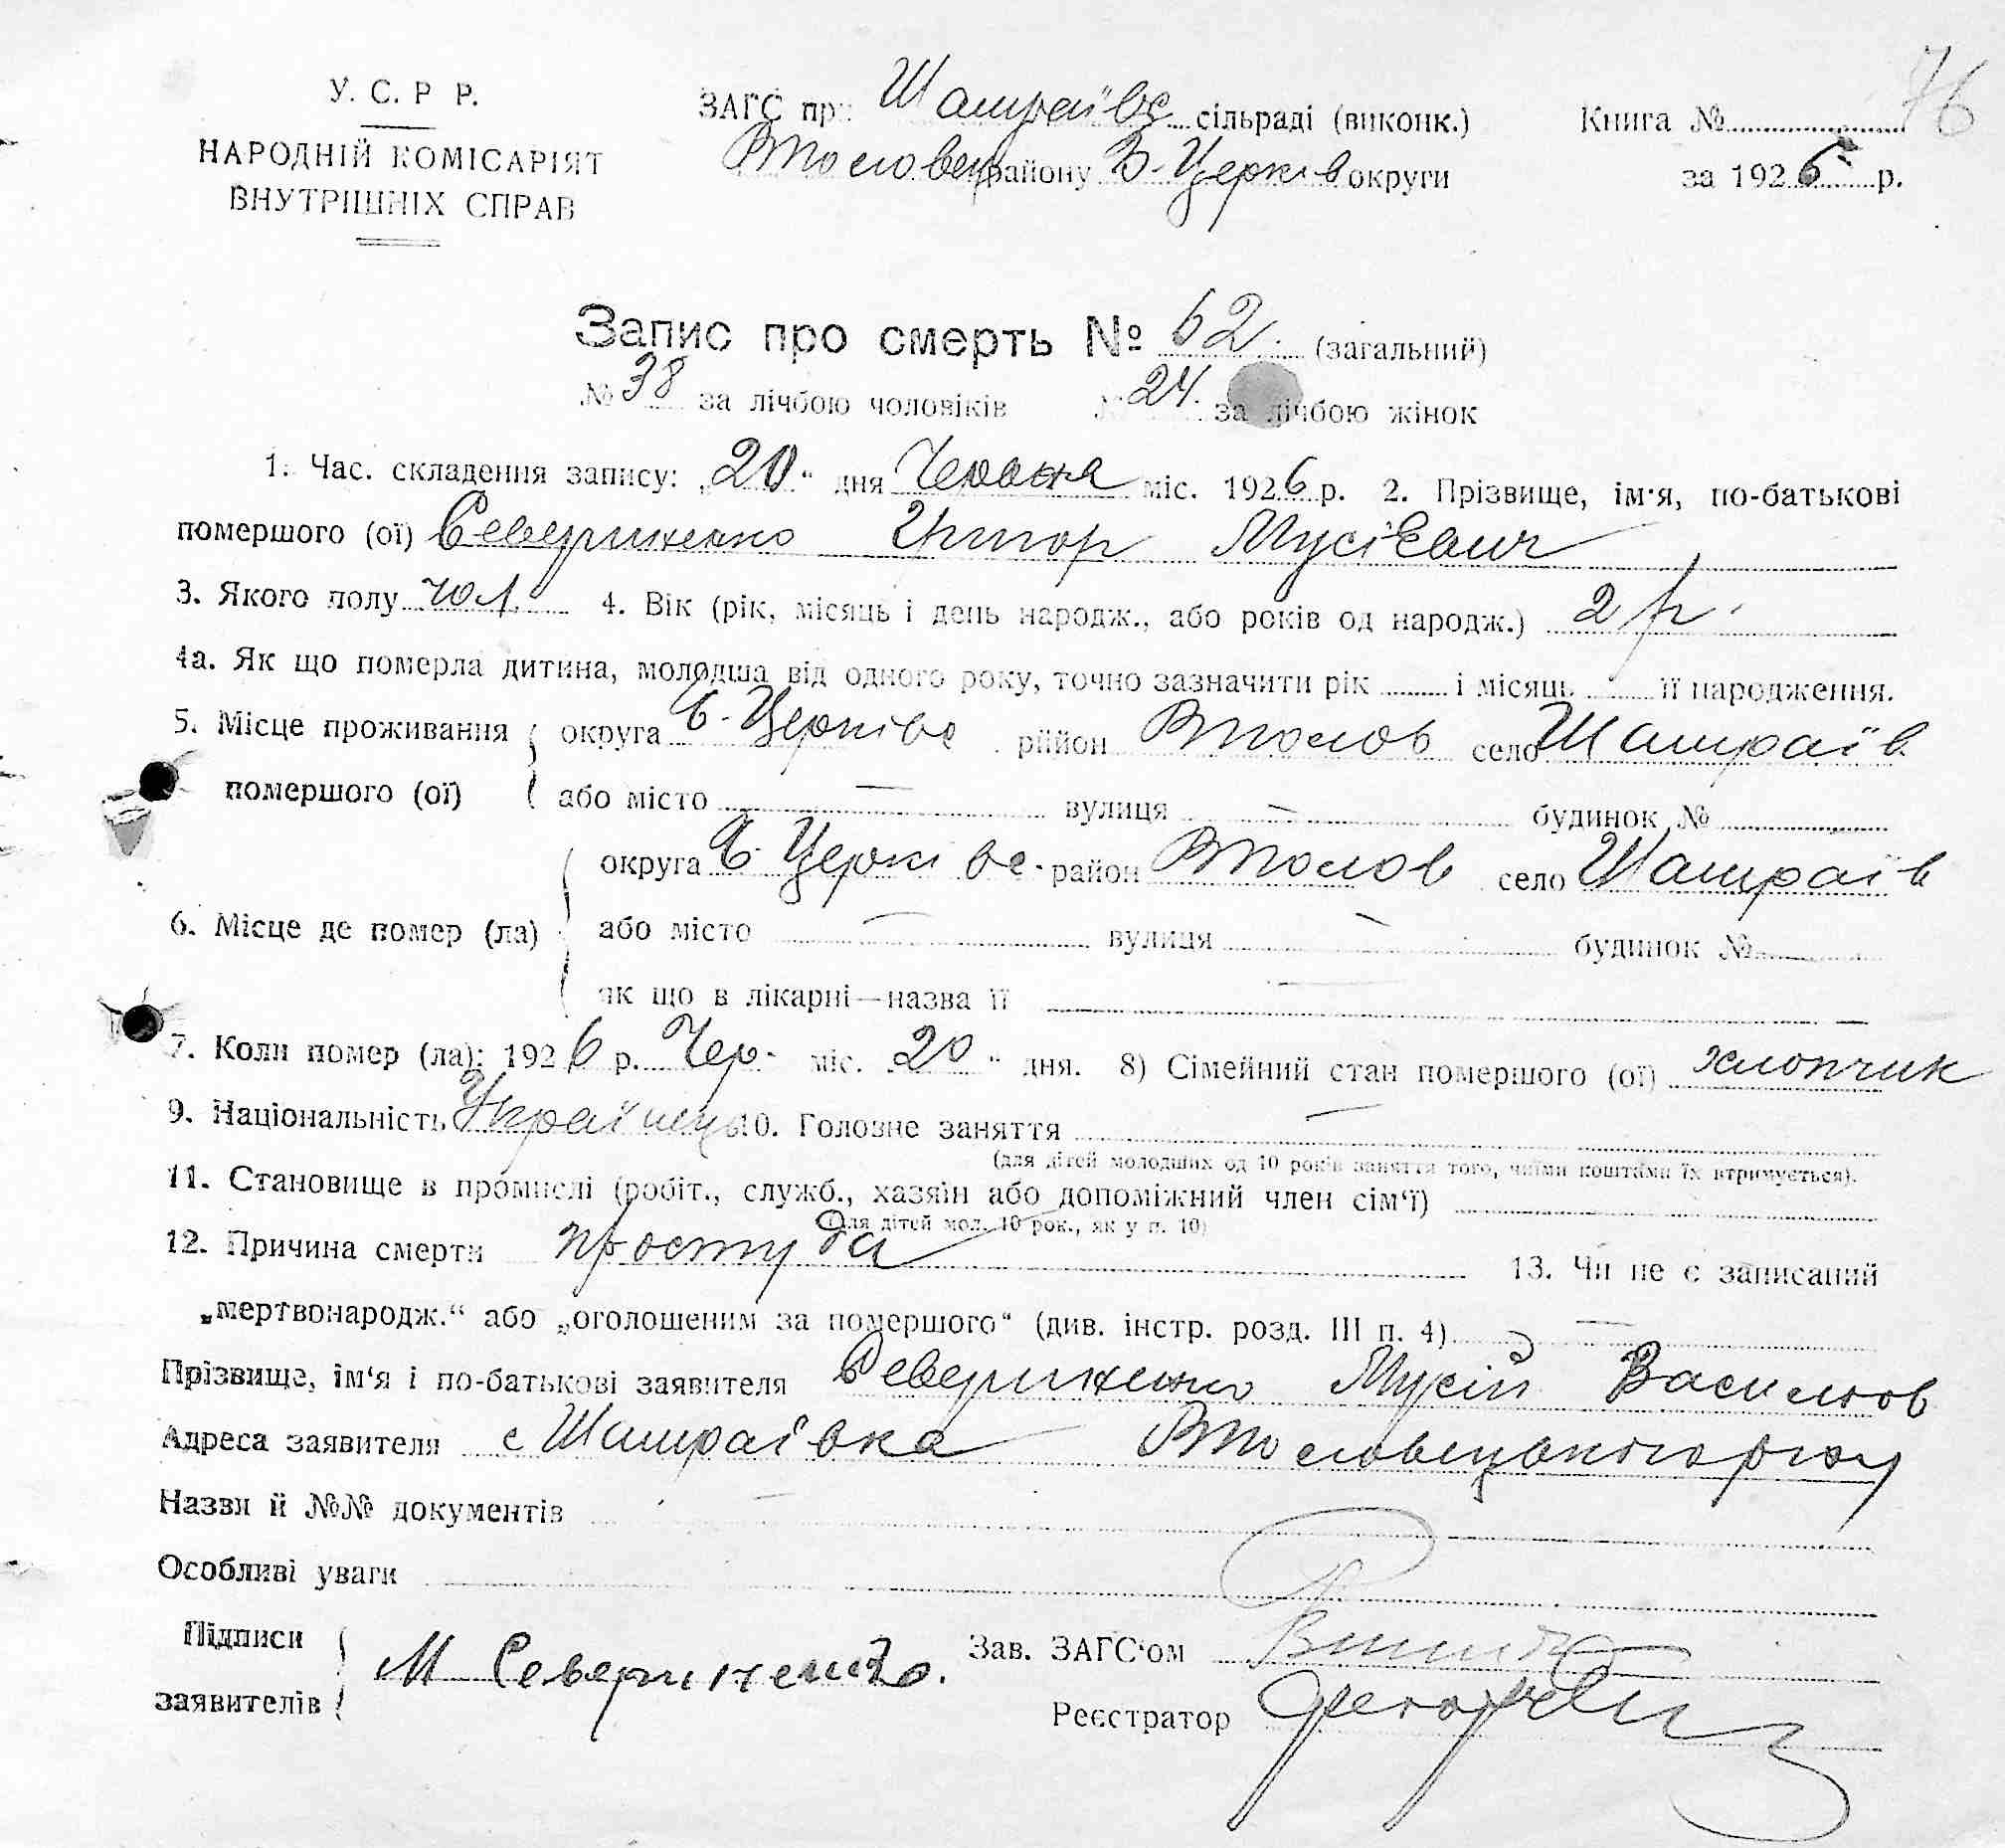 76
У. С. Р Р.
НАРОДНІЙ КОМІСАРІЯТ
ВНУТРІШНІХ СПРАВ
ЗАГС при Шамраївс сільраді (виконк.)
району Б-Церків округи
Книга №
за 1926 р.
Запис про смерть № 62. (загальний)
№ 38 за лічбою чоловіків № 24. за лічбою жінок
1. Час. складення запису: „20" дня Червня міс. 1926 р. 2. Прізвище, ім'я, по-батькові
помершого (ої) Севериненко Григор Мусієвич
3. Якого полу чол. 4. Вік (рік, місяць і день народж., або років од народж.) 2 р.
4а. Як що померла дитина, молодша від одного року, точно зазначити рік і місяць її народження.
5. Місце проживання помершого (ої) округа Б-Церківс район село Шамраїв
або місто — вулиця — будинок №
6. Місце де помер (ла) округа Б Церківс. район село Шамраїв
або місто — вулиця — будинок №
як що в лікарні—назва її —
7. Коли помер (ла): 1926 р. Чер. міс. 20 " дня. 8) Сімейний стан помершого (ої) хлопчик
9. Національність Українець 10. Головне заняття —
(для дітей молодших од 10 років заняття того, чиїми коштами їх втримується).
11. Становище в промислі (робіт., служб., хазяїн або допоміжний член сім'ї)
(для дітей мол. 10 рок., як у п. 10)
12. Причина смерти простуда 13. Чи не є записаний
„мертвонародж." або „оголошеним за помершого" (див. інстр. розд. III п. 4) —
Прізвище, ім'я і по-батькові заявителя Севериненко Мусій Васильов
Адреса заявителя с Шамраївка
Назви й №№ документів —
Особливі уваги
Підписи заявителів М Севериненко.
Зав. ЗАГС'ом
Реєстратор